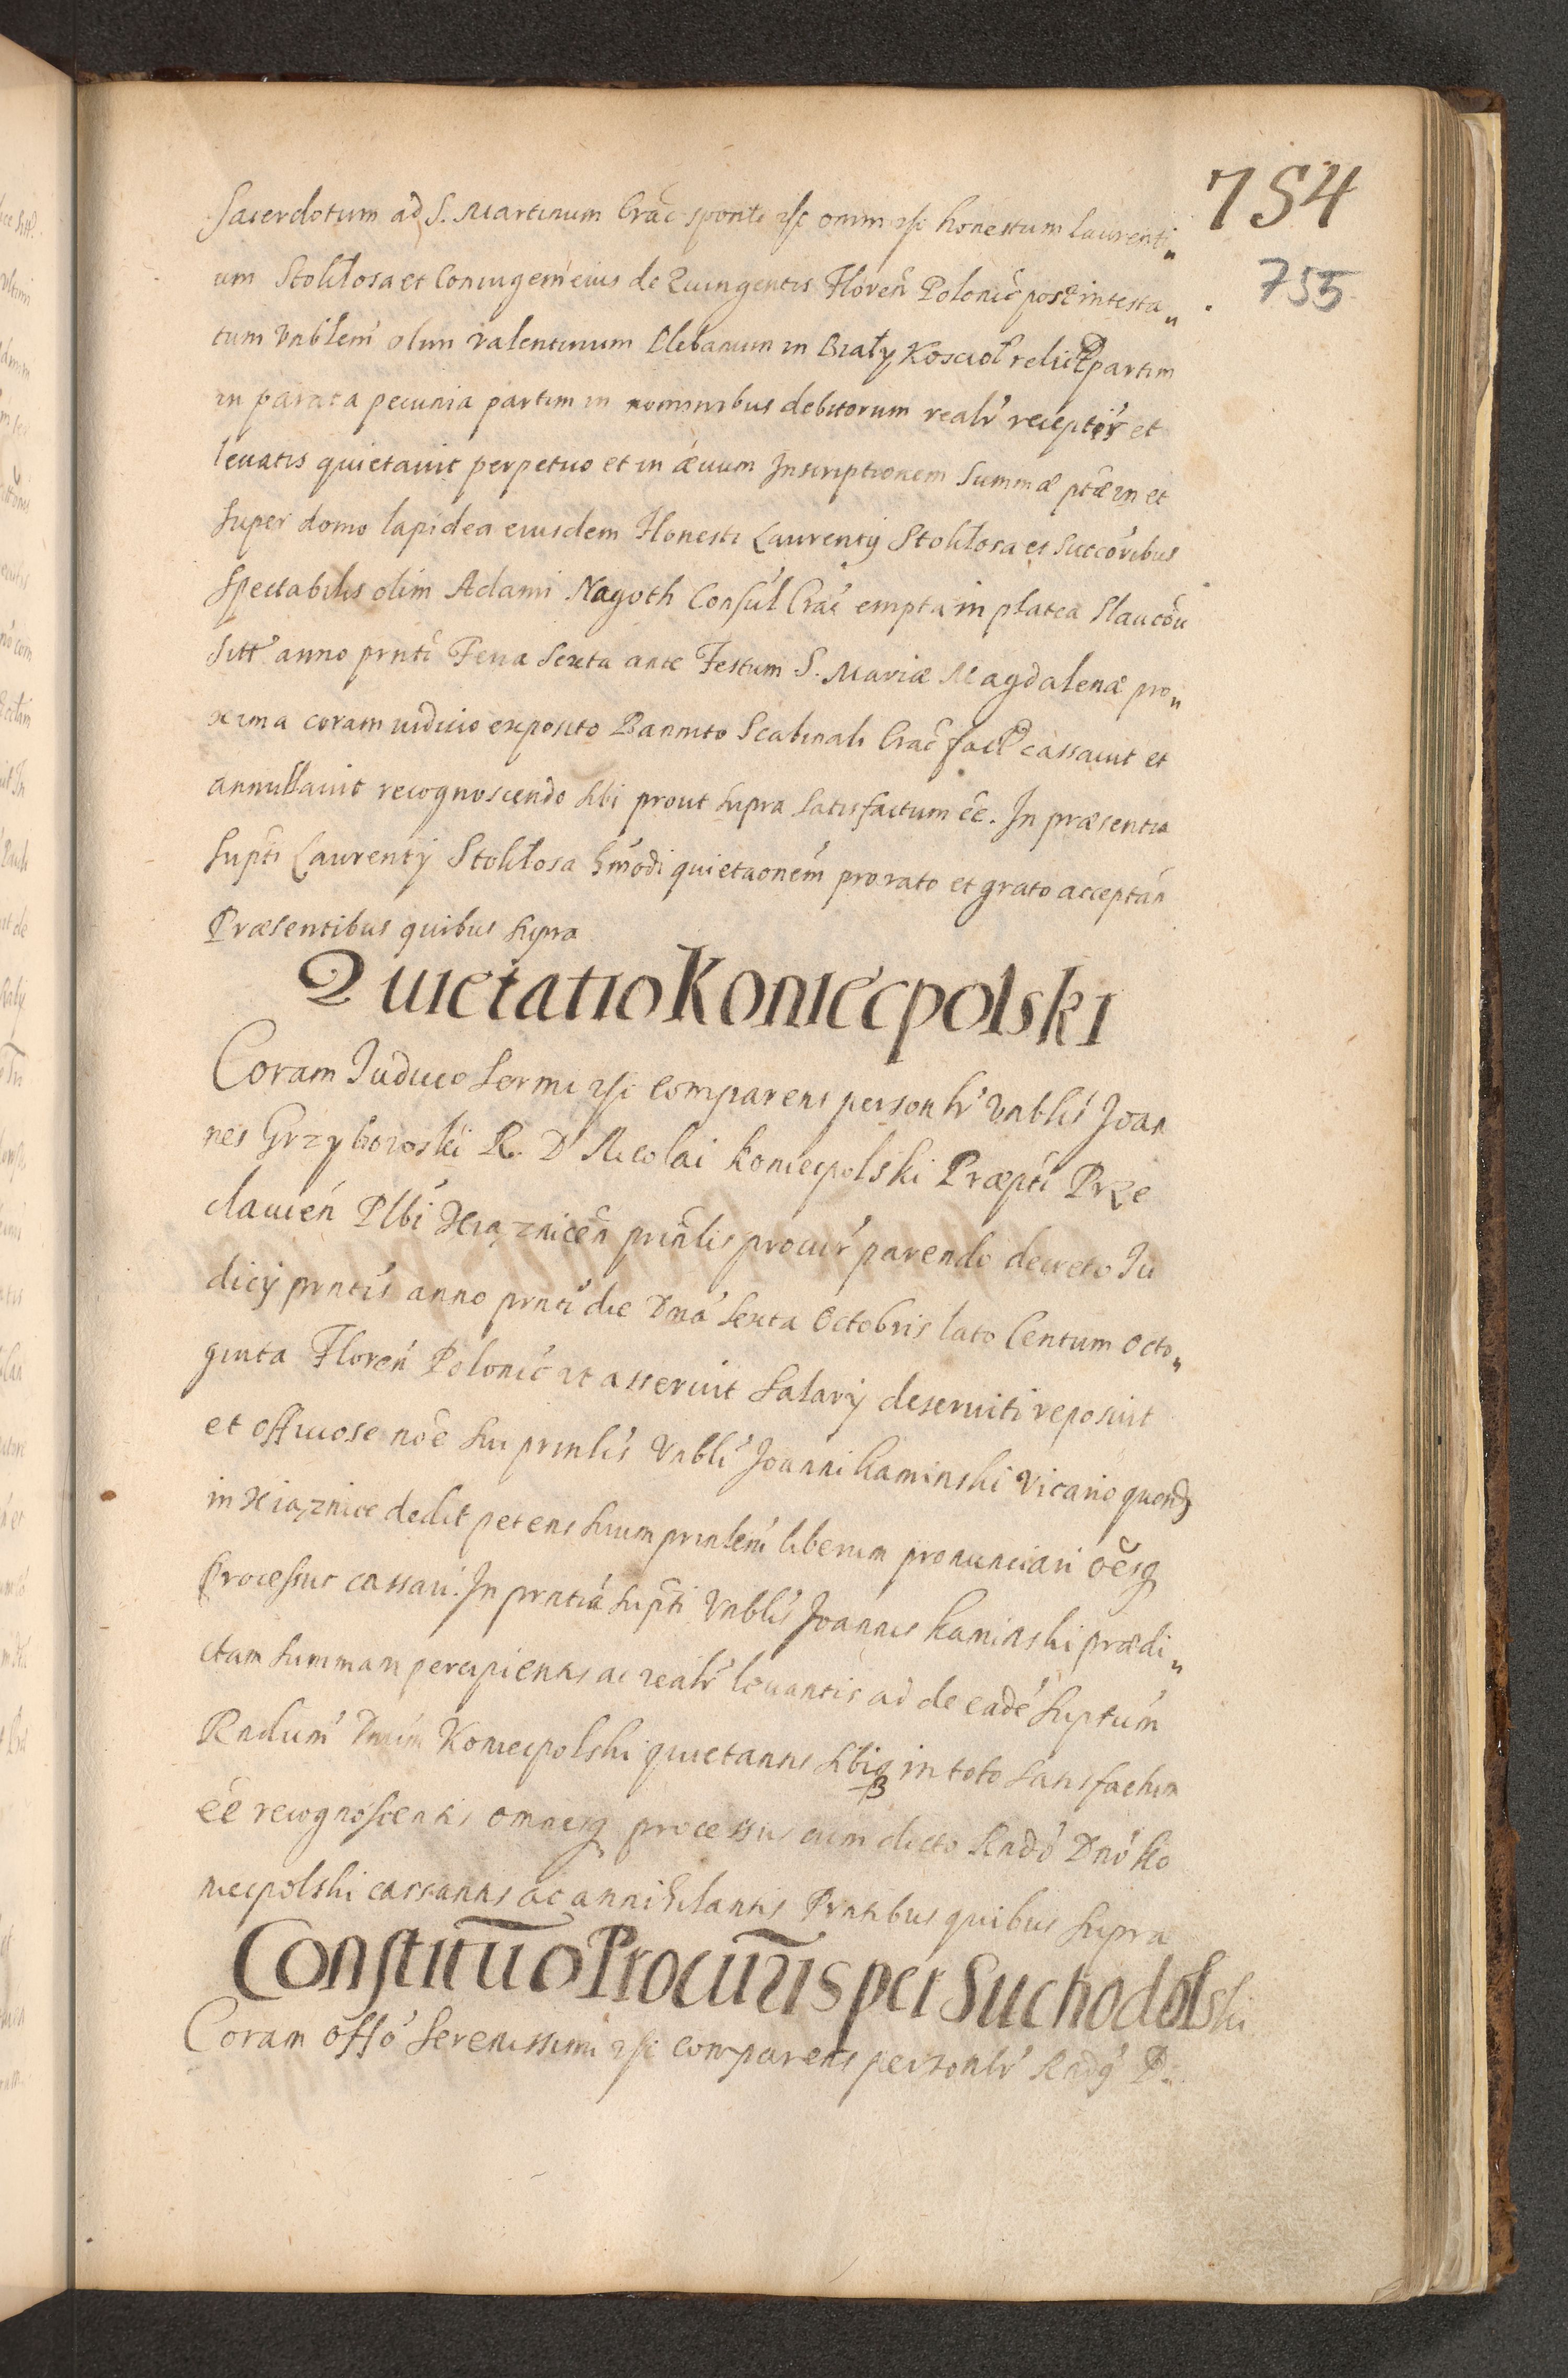 754
755
Sacerdotum ad S. Martinum Crac̃ sponte etc omni etc honestum Laurenti„
um Stokłosa et Coniugem eius de Quingentis Floreñ Polonic̃ post intesta„
tum Vnblem̃ olim Valentinum Plebanum in Biały Koscioł relict partim
in parata pecunia partim in nominibus debitorum realr̃ receptis et
leuatis quietauit perpetuo et in æuum Inscriptionem Summæ ptæ in et
super domo lapidea eiusdem Honesti Laurentij Stokłosa et Succoribus
Spectabilis olim Adami Nagoth Consul Crac̃ empta in platea Slaucou
sitt anno prnti Feria Sexta ante Festum S. Mariæ Magdalenæ pro„
xima coram iudicio exposito Bannito Scabinali Crac̃ fact cassauit et
annullauit recognoscendo sibi prout supra satisfactum eẽ. In præsentia
supti Laurentij Stokłosa hmodi quietaonem̃ pro rato et grato acceptan̄
Præsentibus quibus supra
Quietatio Koniecpolski
Coram Iudicio Sermi etc comparens personlr̃ Vnblis Joan
nes Grzyboroski R. D Nicolai Koniecpolski Præpti Prze
clauien̄ Plbi Xiąznicen̄ prinlis procur̃ parendo decreto Iu
dicij prntis anno prnti die Dma sexta Octobris lato Centum octo„
ginta Floren̄ Polonic̃ ut asseruit Salarij deseruiti reposuit
et officiose noẽ sui prinlis Vnbli Joanni Kaminski Vicario quond
in Xiąznice dedit petens suum prinlem̃ liberum pronunciari oẽsq
Processus cassari. In prntia supti Vnblis Joannis Kaminski prædi„
ctam summam percipientis ac realr̃ leuantis ac de eade suptum̃
Rndum̃ Dnum Koniecpolski quietantis sibiq in toto satisfactum
eẽ recognoscentis omnesq processus cum dicto Rndo Dno Ko
niecpolski cassantis ac annihilantis Prntibus quibus supra
Constitutio Procuris per Suchodolski
Coram offo Serenissimi etc comparens personlr̃ Rndq D